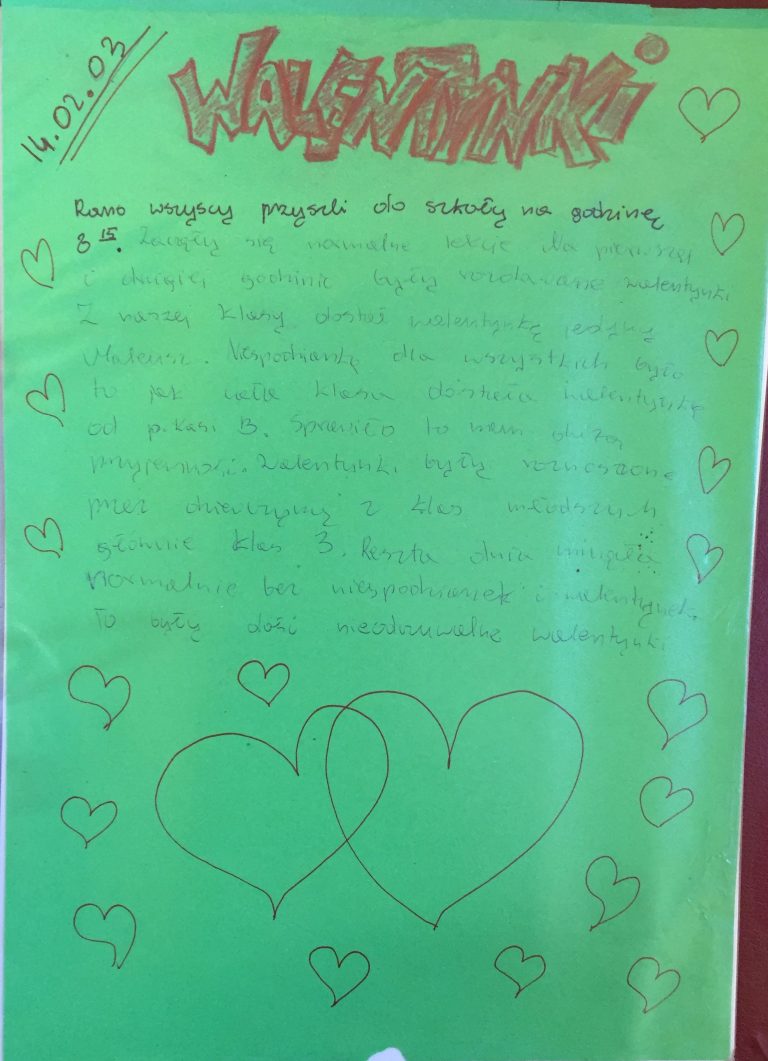 14.02.03
WALENTYNKi
Rano wszyscy przyszli do szkoły na godzinę
8 15. Zaczęły się normalne lekcje Na pierwszej
i drugiej godzinie były rozdawane walentynki
Z naszej klasy dostał walentynkę jedyny
Mateusz. Niespodzianką dla wszystkich było
to jak cała klasa dostała walentynkę
od p. Kasi B. Sprawiło to nam
przyjemność. Walentynki były roznoszone
przez dziewczyny z klas młodszych
głównie klas 3. Reszta dnia minęła
normalnie bez niespodzianek i walentynek.
To były dość walentynki